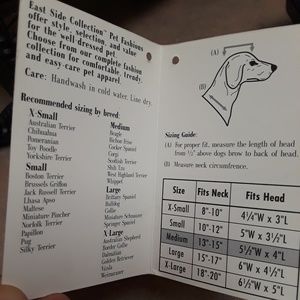 East Side Collection™ Pet Fashions
offer style, selection, and value
for the well dressed pet.
Choose from our complete fashion
collection for comfortable, trendy,
and easy-care pet apparel.
Care: Handwash in cold water. Line dry.
Recommended sizing by breed:
X-Small
Australian Terrier
Chihuahua
Pomeranian
Toy Poodle
Yorkshire Terrier
Small
Boston Terrier
Brussels Griffon
Jack Russell Terrier
Lhasa Apso
Maltese
Miniature Pinscher
Norfolk Terrier
Papillon
Pug
Silky Terrier
Medium
Beagle
Bichon Frise
Cocker Spaniel
Corgi
Scottish Terrier
Shih Tzu
West Highland Terrier
Whippet
Large
Brittany Spaniel
Bulldog
Collie
Miniature Schnauzer
Springer Spaniel
X-Large
Australian Shepherd
Border Collie
Dalmatian
Golden Retriever
Vizsla
Weimaraner
(A)
(B)
Sizing Guide:
(A) For proper fit, measure the length of head
from ½" above dogs brow to back of head.
(B) Measure neck circumference.
Size Fits Neck Fits Head
X-Small 8"-10" 4¼"W x 3"L
Small 10"-12" 5"W x 3½"L
Medium 13"-15" 5½"W x 4"L
Large 15"-17" 6"W x 4½"L
X-Large 18"-20" 6½"W x 5"L